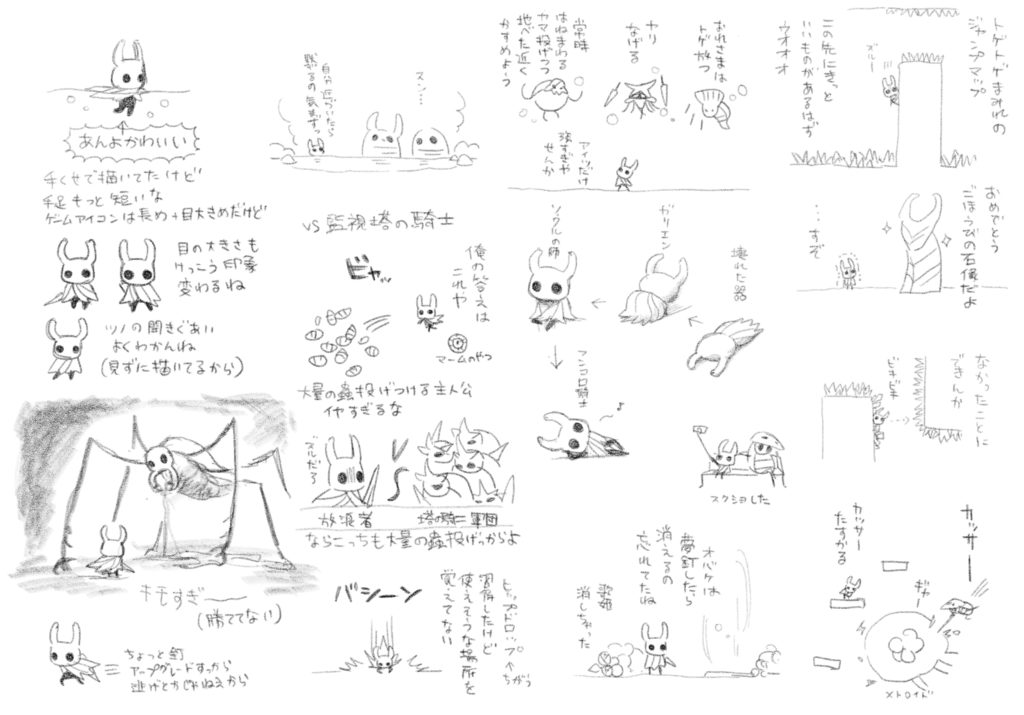 あんよかわいい
手くせで描いてたけど
手足もっと短いな
ゲームアイコンは長め+目大きめだけど
目の大きさも
けっこう印象
変わるね
ツノの開きぐあい
よくわかんね
(見ずに描いてるから)
キモすぎ
(勝ててない)
ちょっと釘
アップグレードすっから
逃げとかじゃねえから
スン…
自分 近づいたら
黙るの 気まずっ
VS 監視塔の騎士
ビャッ
俺の答えは
これや
マームのやつ
大量の蟲投げつける主人公
イヤすぎるな
ズルだろ
VS
放浪者
塔の騎士軍団
ならこっちも大量の蟲投げっからよ
バシーン
ヒップドロップ
習得したけど
使えそうな場所を
覚えてない
ちがう
おれさまは
トゲ放つ
ヤリ
なげる
常時
はねまわる
カマ投げつつ
地べた近く
かすめよう
アイツだけ
強すぎや
せんか
壊れた器
ガリエン
ソウルの師
アンコロ騎士
スクショした
オバケは
夢釘したら
消えるの
忘れてたね
歌姫
消しちゃった
トゲトゲまみれの
ジャンプマップ
ズルー
この先にきっと
いいものがあるはず
ウオオオ
おめでとう
ごほうびの石像だよ
…すぞ
なかったことに
できんか
ビキビキ
カッサー
カッサー
たすかる
ギャ
メトロイド